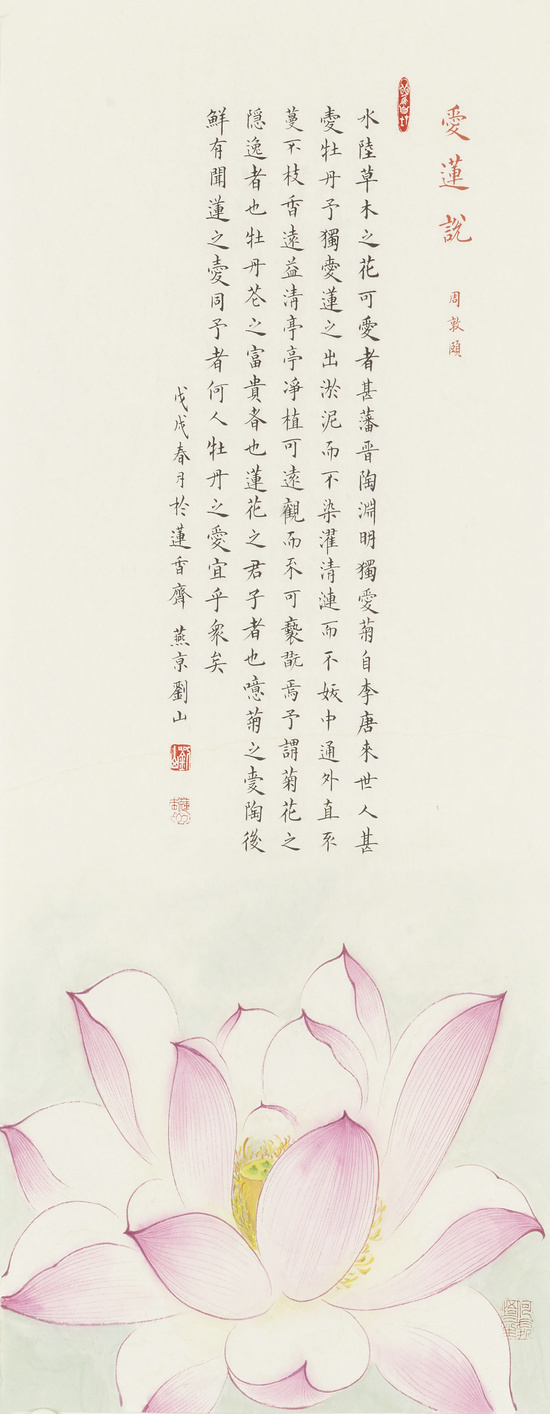 愛蓮說
周敦頤
水陸草木之花可愛者甚藩晉陶淵明獨愛菊自李唐來世人甚
愛牡丹予獨愛蓮之出淤泥而不染濯清漣而不妖中通外直不
蔓不枝香遠益清亭亭淨植可遠觀而不可褻翫焉予謂菊花之
隱逸者也牡丹花之富貴者也蓮花之君子者也噫菊之愛陶後
鮮有聞蓮之愛同予者何人牡丹之愛宜乎衆矣
戊戌春月於蓮香齋 燕京劉山